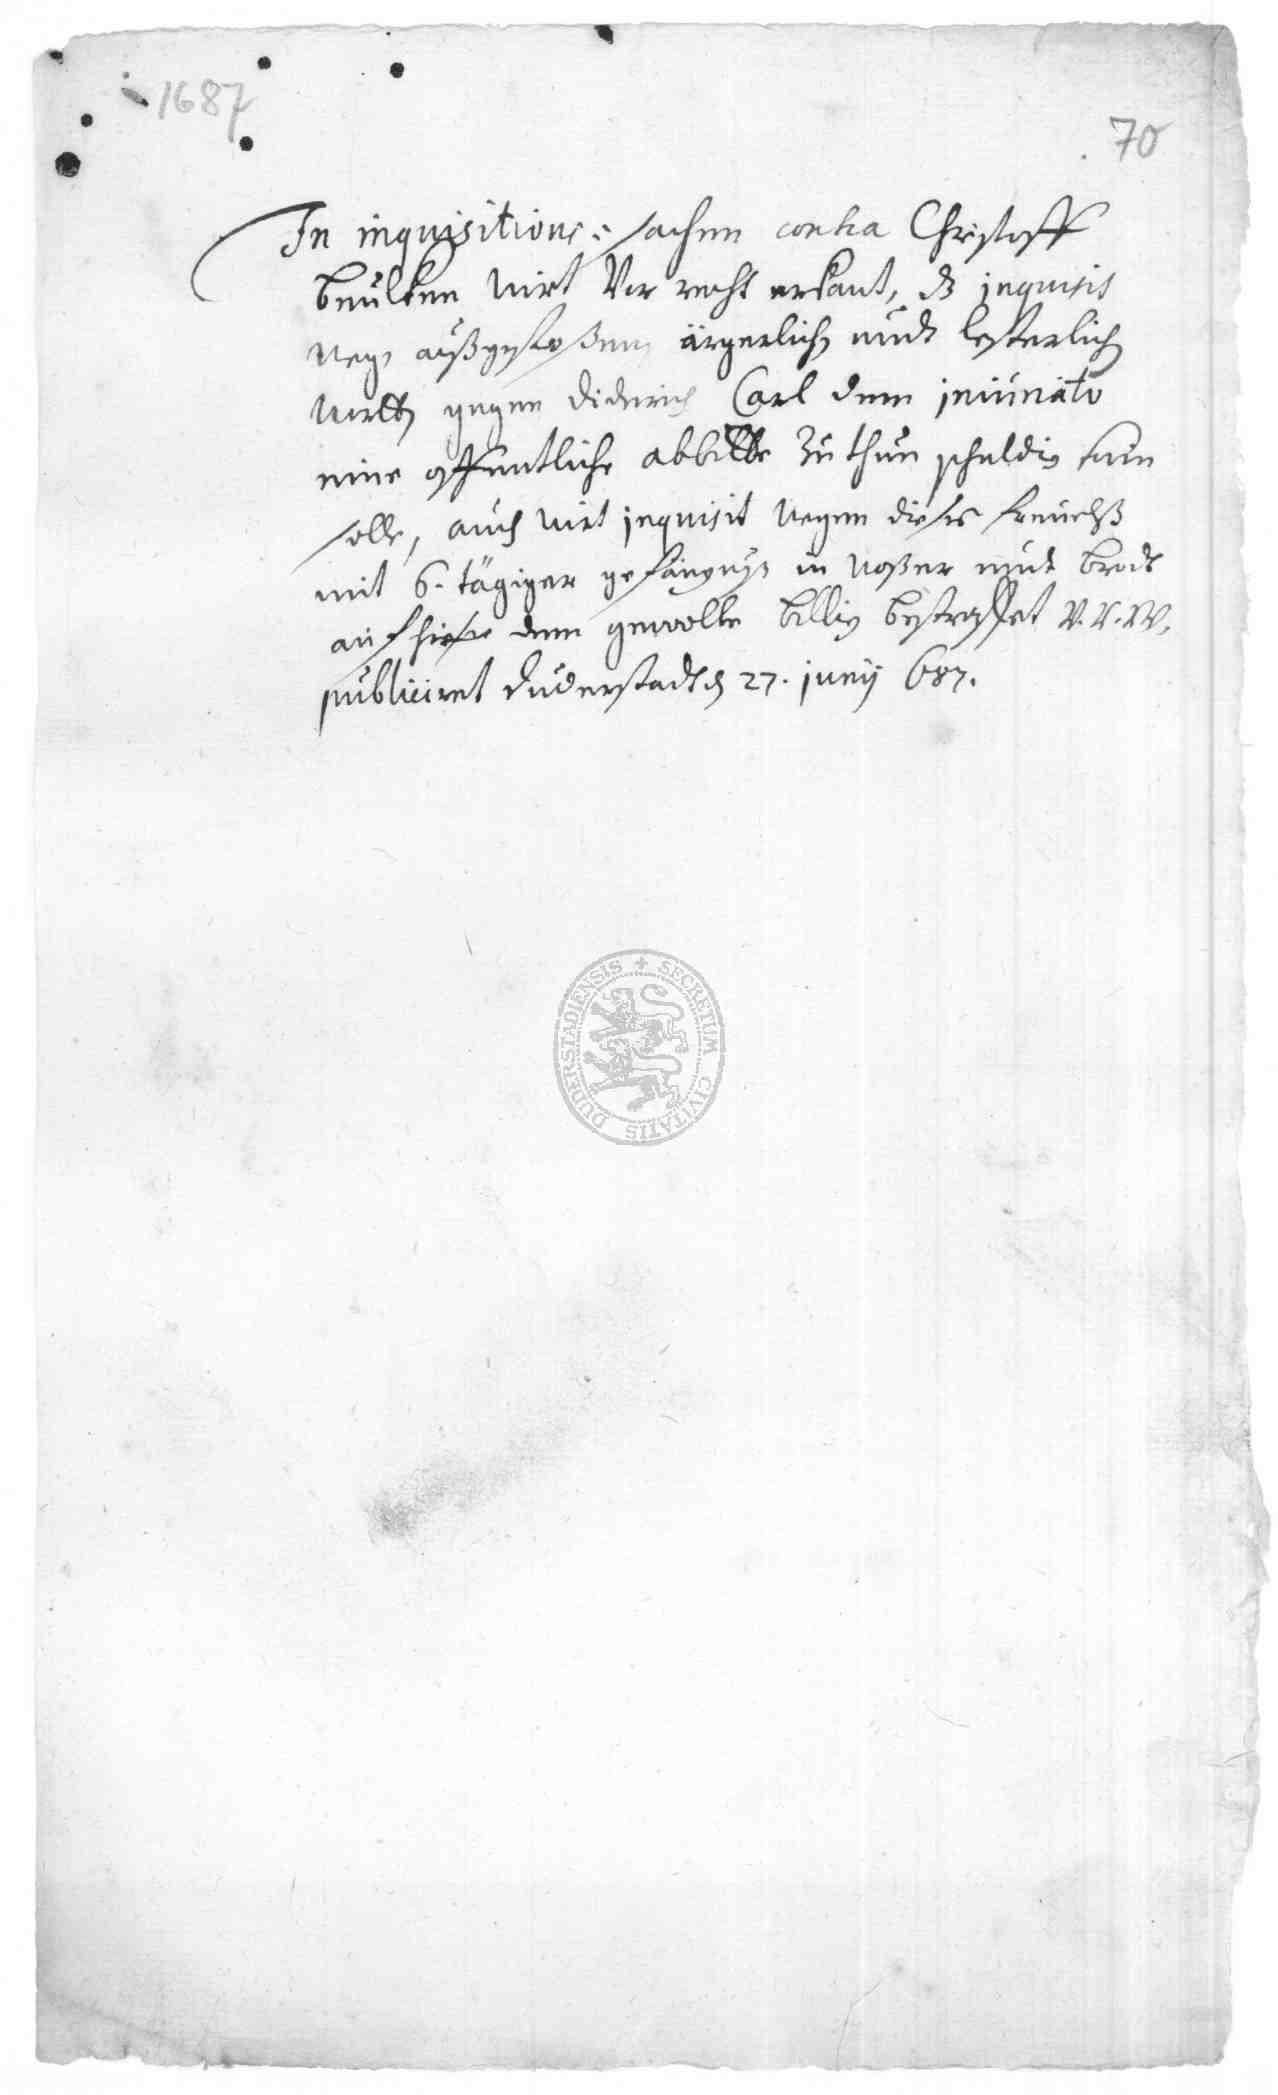 1687
70
In inquisitions: sachen contra Christoff
beülken wirt Vor recht erkant, dz inquisit
weg. außgestoßener ärgerlich. undt lesterlich.
wortt. gegen Diderich Carl dem iniuriato
eine offentliche abbitte zu thun schuldig sein
solle, auch wirt inquisit wegen dieses freuelß
mit 6. tägiger gefängnuß in waßer undt brodt
auf hießiem gewolbe billig bestraffet V. R. W.
publiciret Duderstadt d. 27. junij 687.
SECRETUM CIVITATIS DUDERSTADIENSIS